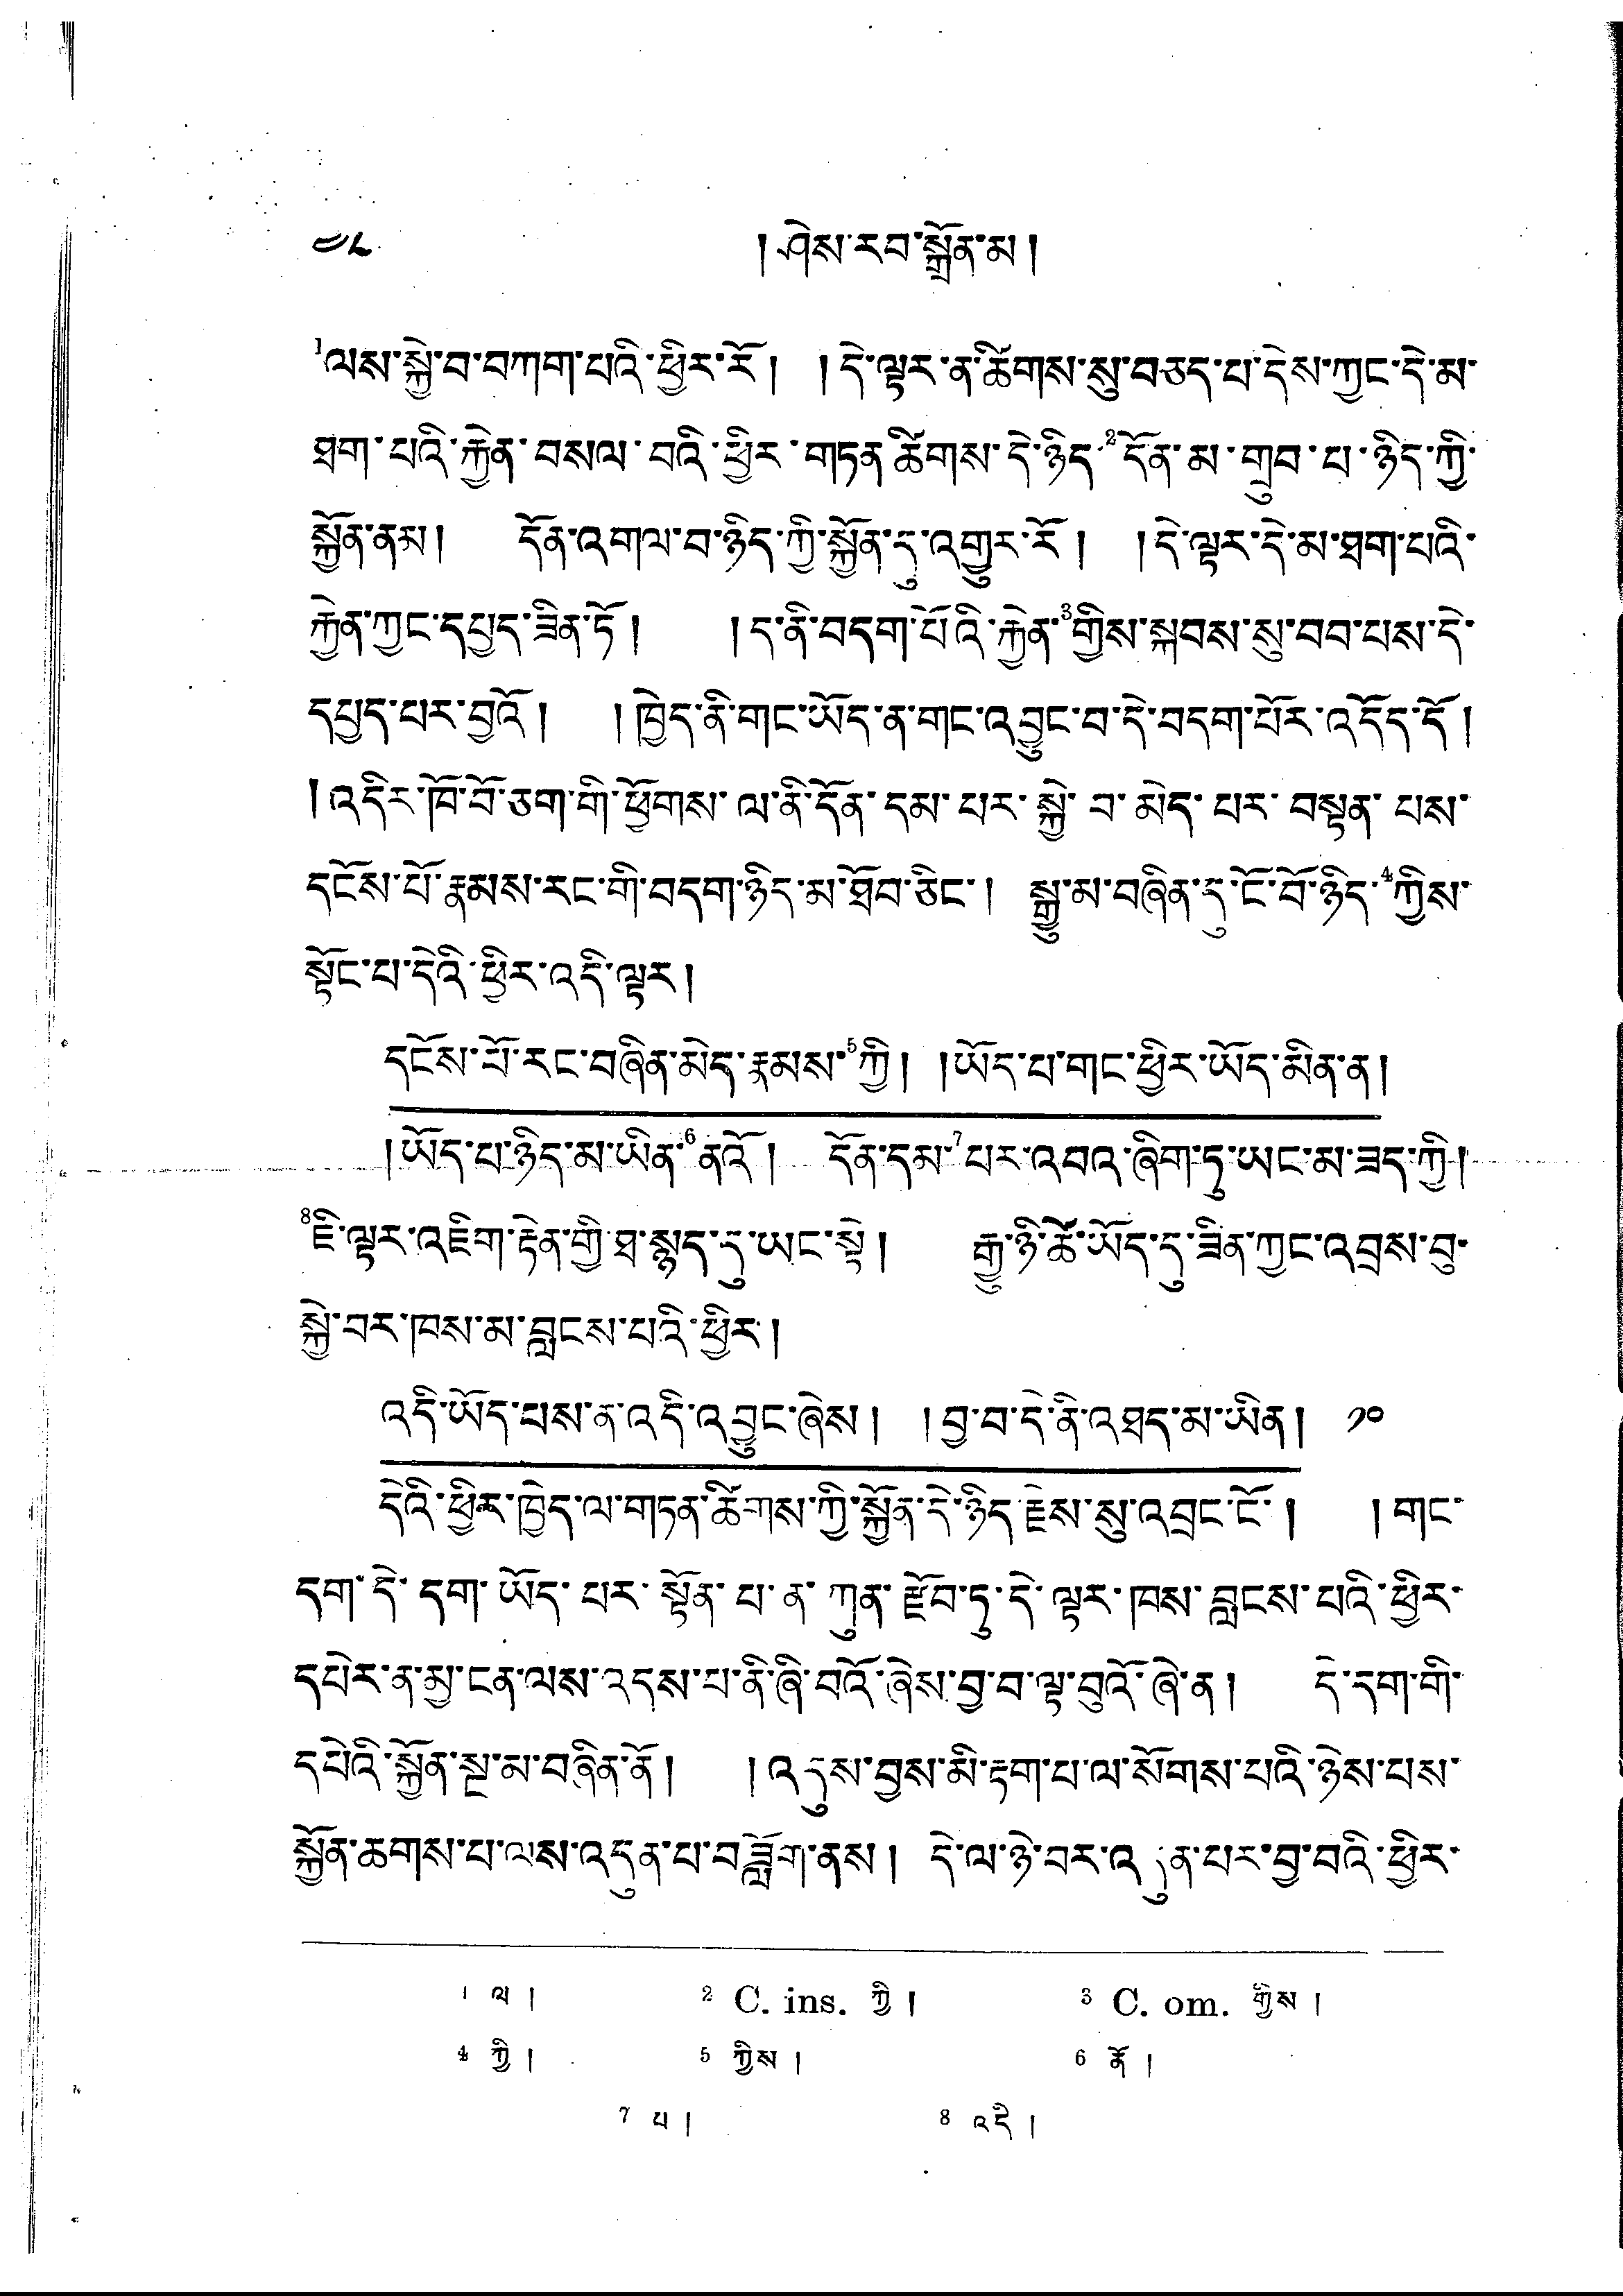 ༧༨ །ཤེས་རབ་སྒྲོན་མ།
¹ལས་སྐྱེ་བ་བཀག་པའི་ཕྱིར་རོ། །དེ་ལྟར་ན་ཚིགས་སུ་བཅད་པ་དེས་ཀྱང་དེ་མ་
ཐག་པའི་རྐྱེན་བསལ་བའི་ཕྱིར་གཏན་ཚིགས་དེ་ཉིད་²དོན་མ་གྲུབ་པ་ཉིད་ཀྱི་
སྐྱོན་ནམ། དོན་འགལ་བ་ཉིད་ཀྱི་སྐྱོན་དུ་འགྱུར་རོ། །དེ་ལྟར་དེ་མ་ཐག་པའི་
རྐྱེན་ཀྱང་དཔྱད་ཟིན་ཏོ། །ད་ནི་བདག་པོའི་རྐྱེན་³གྱིས་སྐབས་སུ་བབ་པས་དེ་
དཔྱད་པར་བྱའོ། །ཁྱེད་ནི་གང་ཡོད་ན་གང་འབྱུང་བ་དེ་བདག་པོར་འདོད་དོ།
།འདིར་ཁོ་བོ་ཅག་གི་ཕྱོགས་ལ་ནི་དོན་དམ་པར་སྐྱེ་བ་མེད་པར་བསྟན་པས་
དངོས་པོ་རྣམས་རང་གི་བདག་ཉིད་མ་ཐོབ་ཅིང་། སྒྱུ་མ་བཞིན་དུ་ངོ་བོ་ཉིད་⁴ཀྱིས་
སྟོང་པ་དེའི་ཕྱིར་འདི་ལྟར།
དངོས་པོ་རང་བཞིན་མེད་རྣམས་⁵ཀྱི། །ཡོད་པ་གང་ཕྱིར་ཡོད་མིན་ན།
།ཡོད་པ་ཉིད་མ་ཡིན་⁶ནའོ། དོན་དམ་⁷པར་འབའ་ཞིག་ཏུ་ཡང་མ་ཟད་ཀྱི།
⁸ཇི་ལྟར་འཇིག་རྟེན་གྱི་ཐ་སྙད་དུ་ཡང་སྟེ། རྒྱུ་ཉི་ཚེ་ཡོད་དུ་ཟིན་ཀྱང་འབྲས་བུ་
སྐྱེ་བར་ཁས་མ་བླངས་པའི་ཕྱིར།
འདི་ཡོད་པས་ན་འདི་འབྱུང་ཞེས། །བྱ་བ་དེ་ནི་འཐད་མ་ཡིན། ༡༠
དེའི་ཕྱིར་ཁྱེད་ལ་གཏན་ཚིགས་ཀྱི་སྐྱོན་དེ་ཉིད་རྗེས་སུ་འབྲང་ངོ་། །གང་
དག་དེ་དག་ཡོད་པར་སྟོན་པ་ན་ཀུན་རྫོབ་ཏུ་དེ་ལྟར་ཁས་བླངས་པའི་ཕྱིར་
དཔེར་ན་མྱ་ངན་ལས་འདས་པ་ནི་ཞི་བའོ་ཞེས་བྱ་བ་ལྟ་བུའོ་ཞེ་ན། དེ་དག་གི་
དཔེའི་སྐྱོན་སྔ་མ་བཞིན་ནོ། །འདུས་བྱས་མི་རྟག་པ་ལ་སོགས་པའི་ཉེས་པས་
སྐྱོན་ཆགས་པ་ལས་འདུན་པ་བཟློག་ནས། དེ་ལ་ཉེ་བར་འདུན་པར་བྱ་བའི་ཕྱིར་
¹ ལ། ² C. ins. ཀྱི། ³ C. om. གྱིས།
⁴ ཀྱི། ⁵ ཀྱིས། ⁶ ནོ།
⁷ པ། ⁸ འདི།